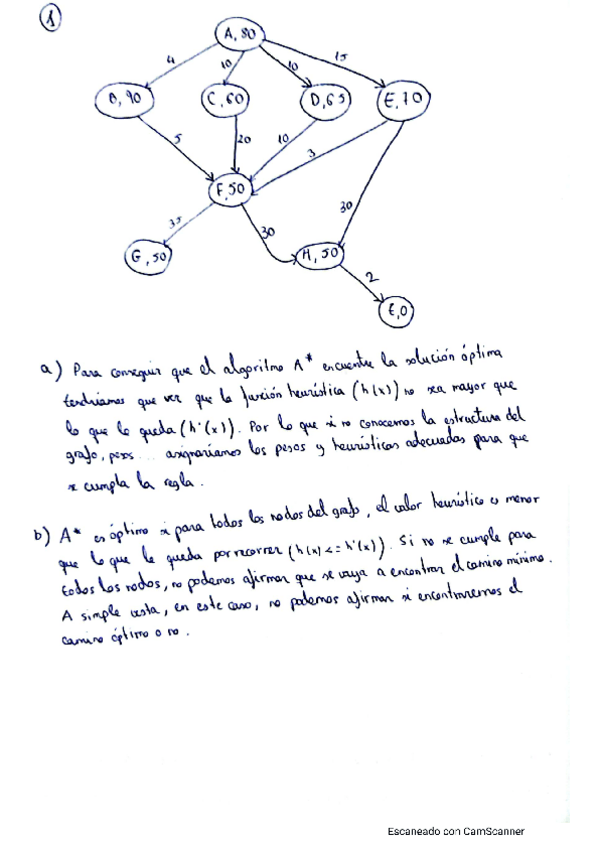 1
A, 80
4
10
10
15
B, 90
C, 60
D, 65
E, 70
5
20
10
3
F, 50
30
35
30
G, 50
H, 50
2
E, 0
a) Para conseguir que el algoritmo A* encuentre la solución óptima
tendríamos que ver que la función heurística (h(x)) no sea mayor que
lo que le queda (h'(x)). Por lo que si no conocemos la estructura del
grafo, pesos... asignaríamos los pesos y heurísticas adecuadas para que
se cumpla la regla.
b) A* es óptimo si para todos los nodos del grafo, el valor heurístico es menor
que lo que le queda por recorrer (h(x) <= h'(x)). Si no se cumple para
todos los nodos, no podemos afirmar que se vaya a encontrar el camino mínimo.
A simple vista, en este caso, no podemos afirmar si encontraremos el
camino óptimo o no.
Escaneado con CamScanner